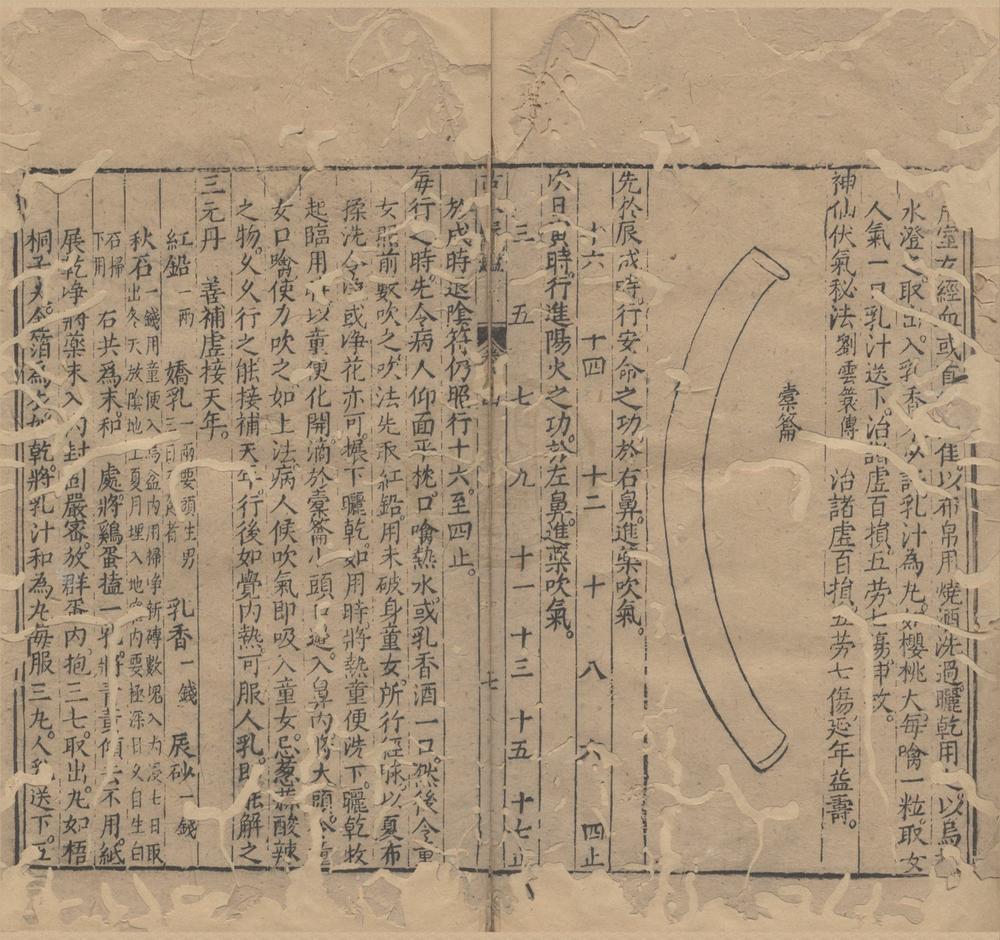 室女經血或首 佳以布帛用燒酒洗過曬乾用 以烏
水澄之取出入乳香 以 乳汁為丸如櫻桃大每噙一粒取女
人氣一口乳汁送下治諸虛百損五勞七傷 效
神仙伏氣秘法 劉雲篆傳 治諸虛百損五勞七傷延年益壽
橐籥
先於辰戌時行安命之功於右鼻進藥吹氣
十六 十四 十二 十 八 六 四止
次日寅時行進陽火之功於左鼻進藥吹氣
三 五 七 九 十一 十三 十五 十七止
古
七
於戌時退陰符仍照行十六至四止
每行之時先令病人仰面平枕口噙熱水或乳香酒一口然後令童
女照前數吹之吹法先取紅鉛用未破身童女所行 以夏布
揉洗令淨或淨花亦可攞下曬乾如用時將熱童便洗下曬乾收
起臨用時以童便化開滴於橐籥小頭 入鼻內將大頭令童
女口噙使力吹之如上法病人候吹氣即吸入童女忌蔥蒜酸辣
之物久久行之能接補天年行後如覺內熱可服人乳即能解之
三元丹 善補虛接天年
紅鉛一兩 嬌乳一兩要頭生男 三 者 乳香一錢 辰砂一錢
秋石一錢用童便入 盆內用掃淨新磚數塊入內浸七日取
出冬天放陰地上夏月埋入地 內要極深日久自生白
石掃下用 右共為末和 處將雞蛋搕一孔將青黃傾去不用紙
展乾淨將藥末入內封固嚴密放群蛋內抱三七取出丸如梧
桐子大金箔為衣如乾將乳汁和為丸每服三丸人乳送下